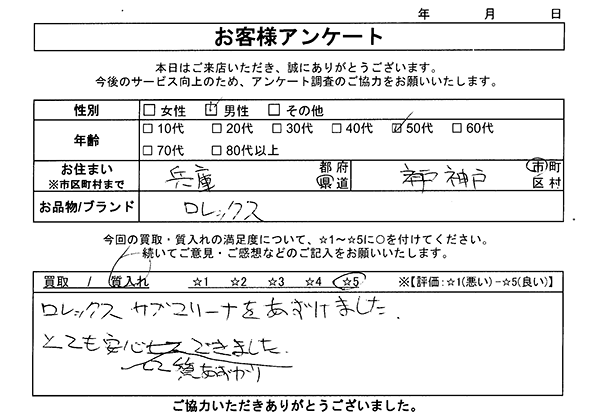 年 月 日
お客様アンケート
本日はご来店いただき、誠にありがとうございます。
今後のサービス向上のため、アンケート調査のご協力をお願いいたします。
性別 □女性 ☑男性 □その他
年齢 □10代 □20代 □30代 □40代 ☑50代 □60代
□70代 □80代以上
お住まい 兵庫 都府 神戸 市町
※市区町村まで 県道 区村
お品物/ブランド ロレックス
今回の買取・質入れの満足度について、☆1～☆5に○を付けてください。
続いてご意見・ご感想などのご記入をお願いいたします。
買取 / 質入れ ☆1 ☆2 ☆3 ☆4 ☆5 ※【評価:☆1(悪い)-☆5(良い)】
ロレックス サブマリーナをあずけました.
とても安心 できました.
質あずかり
ご協力いただきありがとうございました。